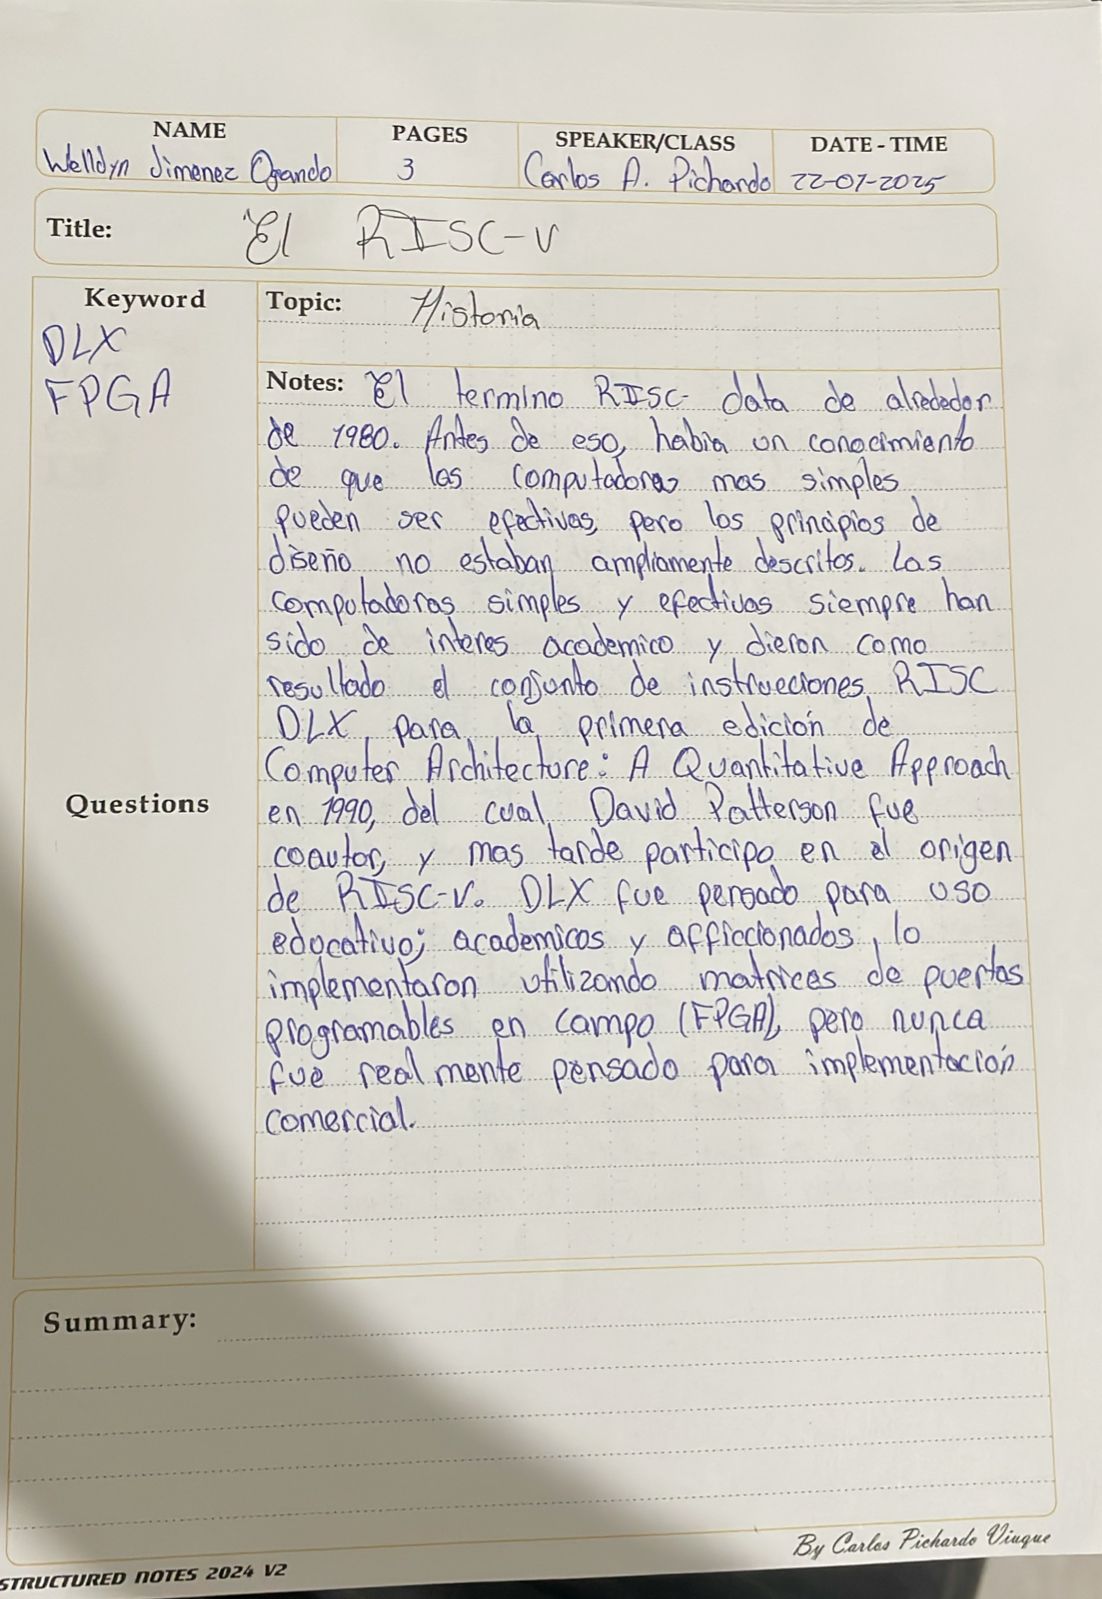 NAME PAGES SPEAKER/CLASS DATE-TIME
Welldyn Jimenez Ogando 3 Carlos A. Pichardo 22-07-2025
Title: El RISC-V
Keyword
DLX
FPGA
Questions
Topic: Historia
Notes: El termino RISC data de alrededor
de 1980. Antes de eso, habia un conocimiento
de que las computadoras mas simples
pueden ser efectivas, pero los principios de
diseño no estaban ampliamente descritos. Las
computadoras simples y efectivas siempre han
sido de interes academico y dieron como
resultado el conjunto de instrucciones RISC
DLX para la primera edición de
Computer Architecture: A Quantitative Approach
en 1990, del cual David Patterson fue
coautor, y mas tarde participo en el origen
de RISC-V. DLX fue pensado para uso
educativo; academicos y afficcionados, lo
implementaron utilizando matrices de puertas
programables en campo (FPGA), pero nunca
fue realmente pensado para implementación
comercial.
Summary:
By Carlos Pichardo Viuque
STRUCTURED NOTES 2024 V2